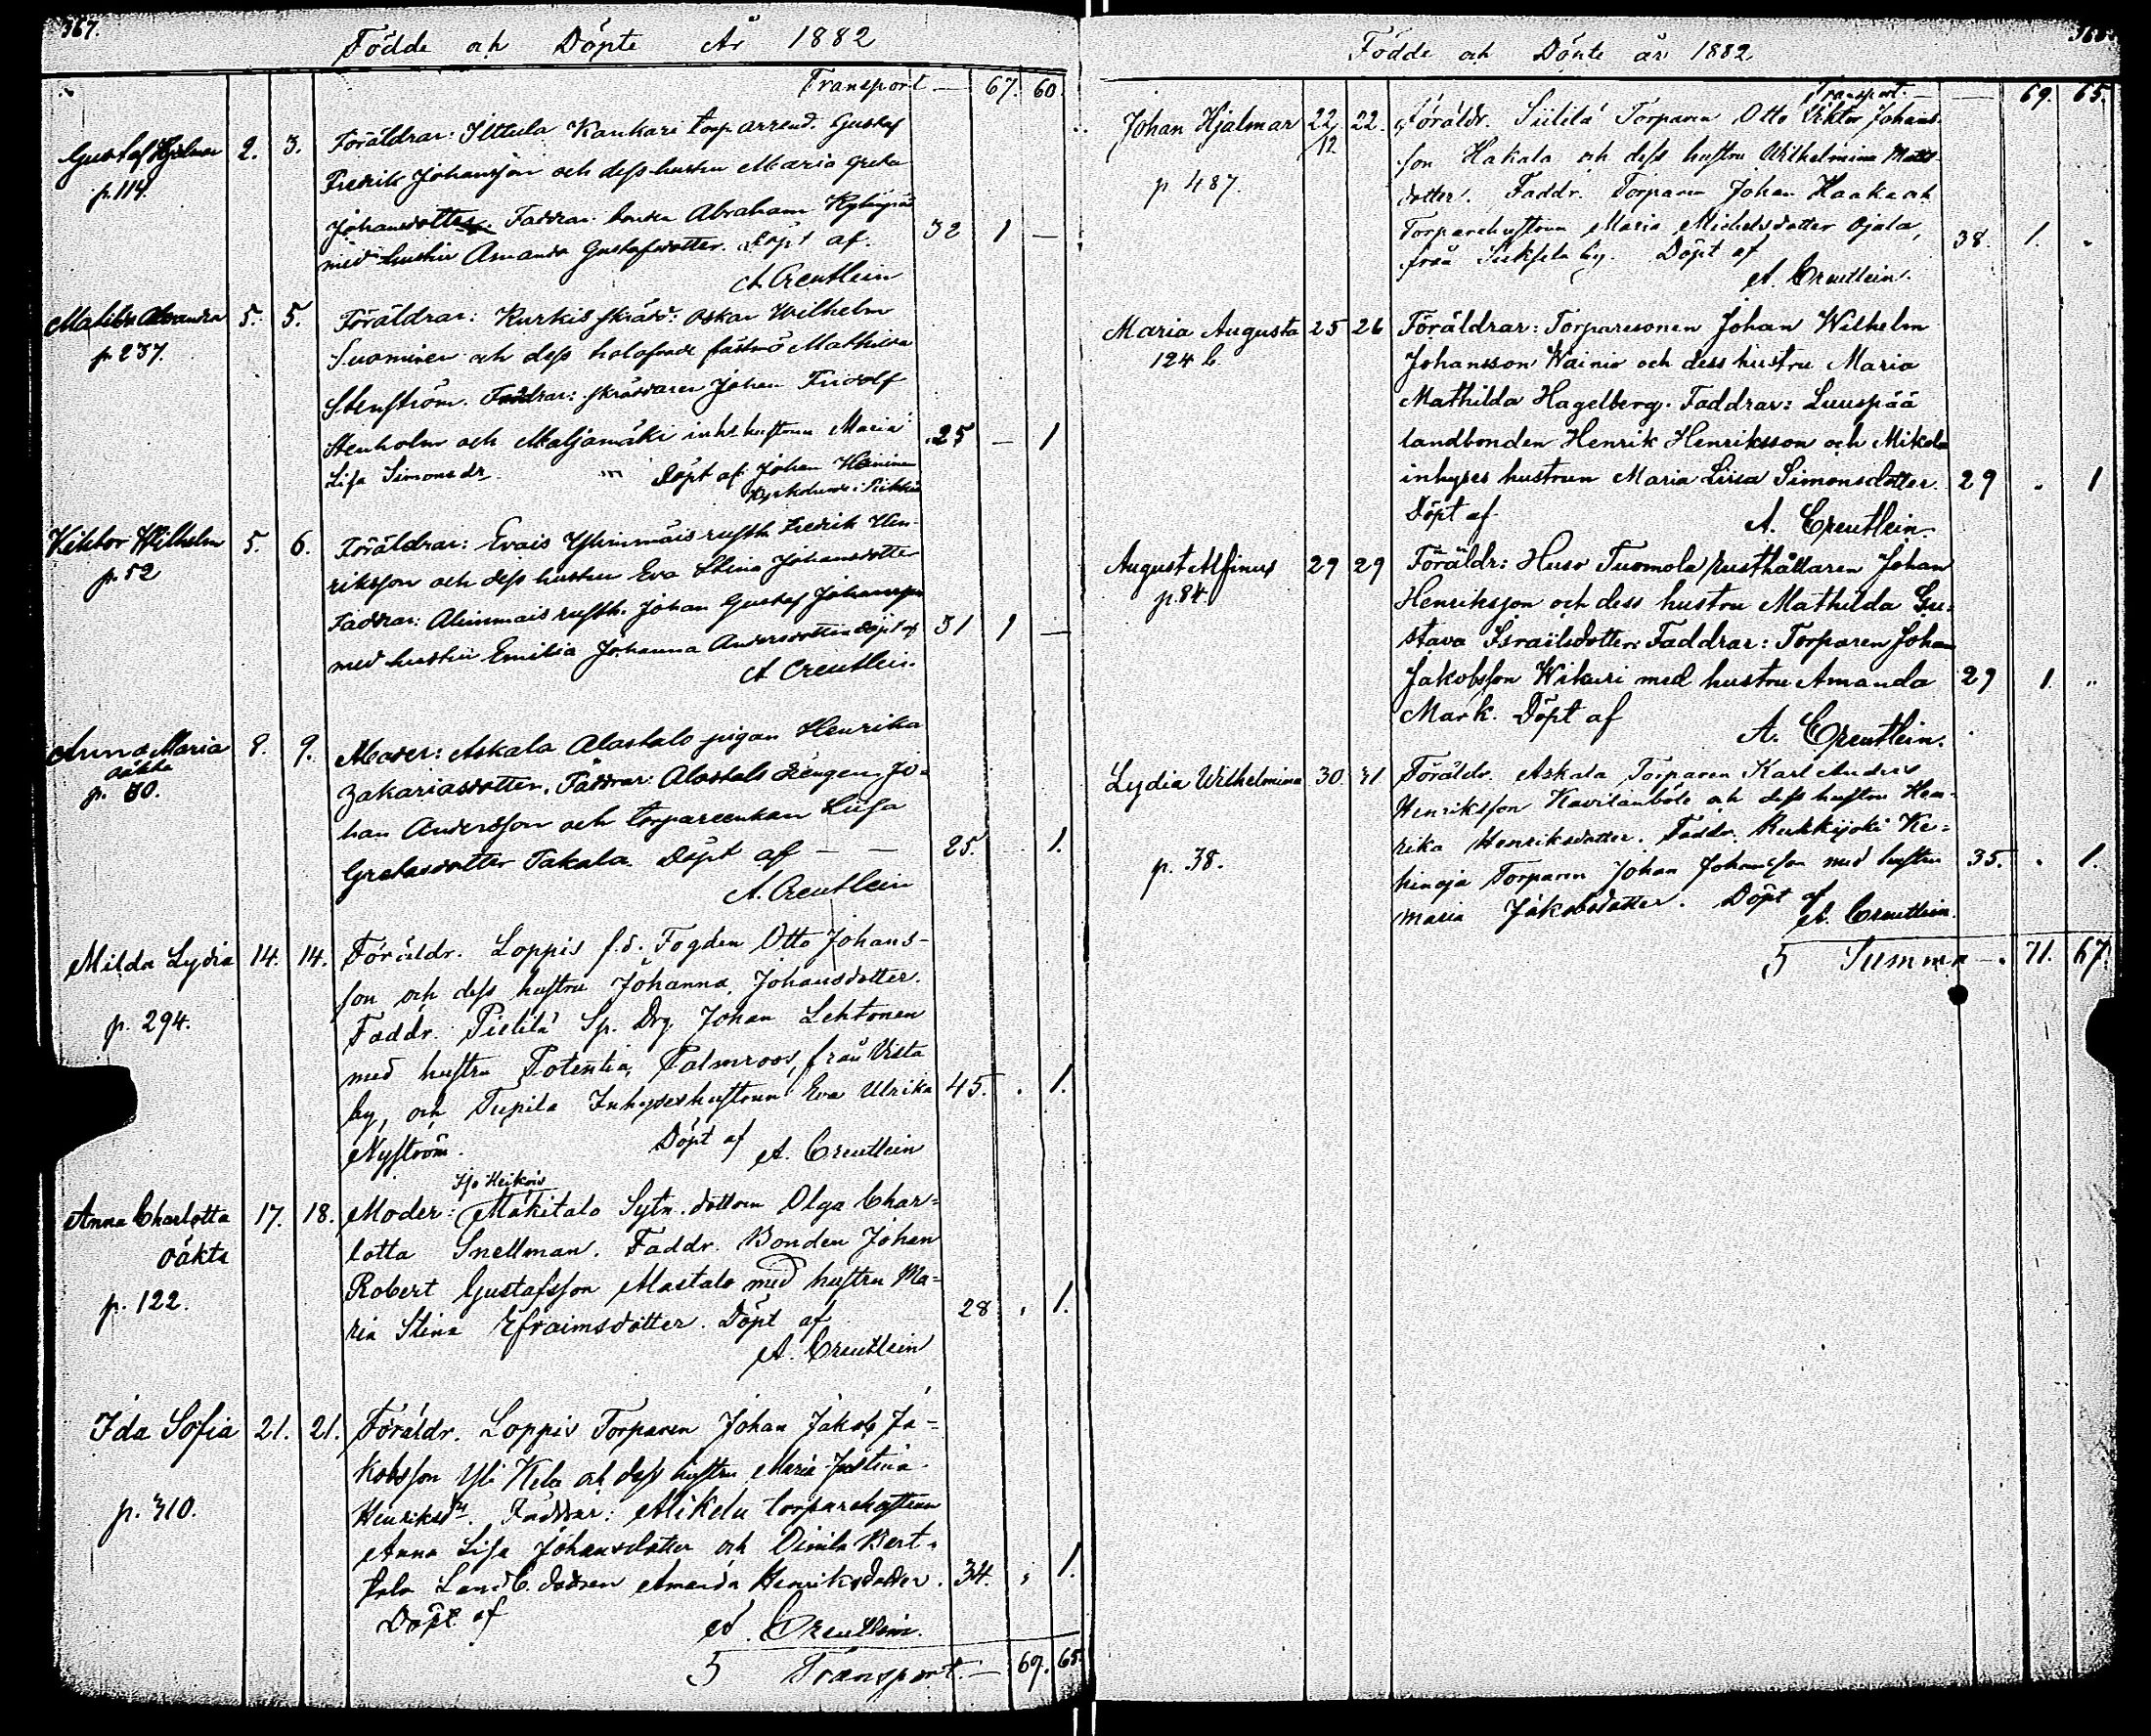 367.
Födde och Döpte År 1882
Transport — 67. 60.
Gustaf Hjalmar 2. 3. Föräldrar: Ilttula Kankari torp arrend. Gustaf
p. 114. Fredrik Johansson och dess hustru Maria Greta
Johansdotter. Faddrar: bonden Abraham
med hustru Amanda Gustafsdotter. Döpt af. 32 1 —
A. Creutlein
Matilda Alexandra 5. 5. Föräldrar: Kurkis skrädd: Oskar Wilhelm
p. 237. Suominen och dess fästmö Mathilda
Stenström. Faddrar: skräddaren Johan Fridolf
Stenholm och Maljamäki inhs hustrun Maria 25 — 1
Lisa Simonsdr Döpt af: Johan Heininen
i Piikkis
Viktor Wilhelm 5. 6. Föräldrar: Evais rusth. Fredrik Hen-
p. 52 riksson och dess hustru Eva Stina Johansdotter
Faddrar: Alinmais rusth. Johan Gustaf Johansson
med hustru Emilia Johanna Andersdotter döpt af 31 1 —
A. Creutlein.
Anna Maria 8. 9. Moder: Askala Alastalo pigan Henrika
oäkta Zakariasdotter. Faddrar: Alastalo drengen Jo-
p. 30. han Andersson och torpareenkan Liisa
Gretasdotter Takala. Döpt af — — 25. 1.
A. Creutlein
Milda Lydia 14. 14. Föräldr. Loppis f.d. Fogden Otto Johans-
son och dess hustru Johanna Johansdotter.
p. 294. Faddr. Pietilä Sp. Drg. Johan Lehtonen
med hustru Potentia Palmroos, från Vista
by, och Tupila Inhyseshustrun Eva Ulrika 45. . 1.
Nyström. Döpt af A. Creutlein
Heikois
Anna Charlotta 17. 18. Moder: Mäkitalo Sytn. dottern Olga Char-
oäkta lotta Snellman. Faddr. Bonden Johan
p. 122. Robert Gustafsson Alastalo med hustru Ma-
ria Stina Efraimsdotter. Döpt af 28 . 1.
A. Creutlein
Ida Sofia 21. 21. Föräldr. Loppis Torparen Johan Jakob Ja-
kobsson Yli Kela och dess hustru Maria Justina
p. 310. Henriksdr. Faddrar: Mikola torparehustrun
Anna Lisa Johansdotter och Bert-
tala Landb. dottren Amanda Henriksdotter. 34. . 1.
Döpt af A. Creutlein.
5 Transport. — 69. 65.
368.
Födde och Döpte år 1882
Transport. — 69. 65.
Johan Hjalmar 22/12 22. Föräldr. Torparen Otto Viktor Johans-
son Hakala och dess hustru Wilhelmina Matts-
p 487. dotter. Faddr. Torparen Johan Haaka och
Torparehustrun Maria Michelsdotter Ojala, 38. 1. .
från by. Döpt af
A. Creutlein.
Maria Augusta 25 26 Föräldrar: Torparesonen Johan Wilhelm
124 b. Johansson Wainio och dess hustru Maria
Mathilda Hagelberg. Faddrar: Luuspää
landbonden Henrik Henriksson och Mikola
inhyses hustrun Maria Liisa Simonsdotter. 29 . 1
Döpt af A. Creutlein.
August Alfinus 29 29 Föräldr: Huso Tuomola rusthållaren Johan
p. 84. Henriksson och dess hustru Mathilda Gu-
stava Israilsdotter. Faddrar: Torparen Johan
Jakobsson Wikuri med hustru Amanda 29 1 ..
Mark. Döpt af A. Creutlein.
Lydia Wilhelmina 30. 31 Föräldr. Askala Torparen Karl Anders
Henriksson och dess hustru Hen-
rika Henriksdotter. Faddr. Rukkijoki Ke-
p. 38. hinoja Torparen Johan Johansson med hustru 35. . 1.
Maria Jakobsdotter. Döpt af
A. Creutlein.
5 Summa — . 71. 67.